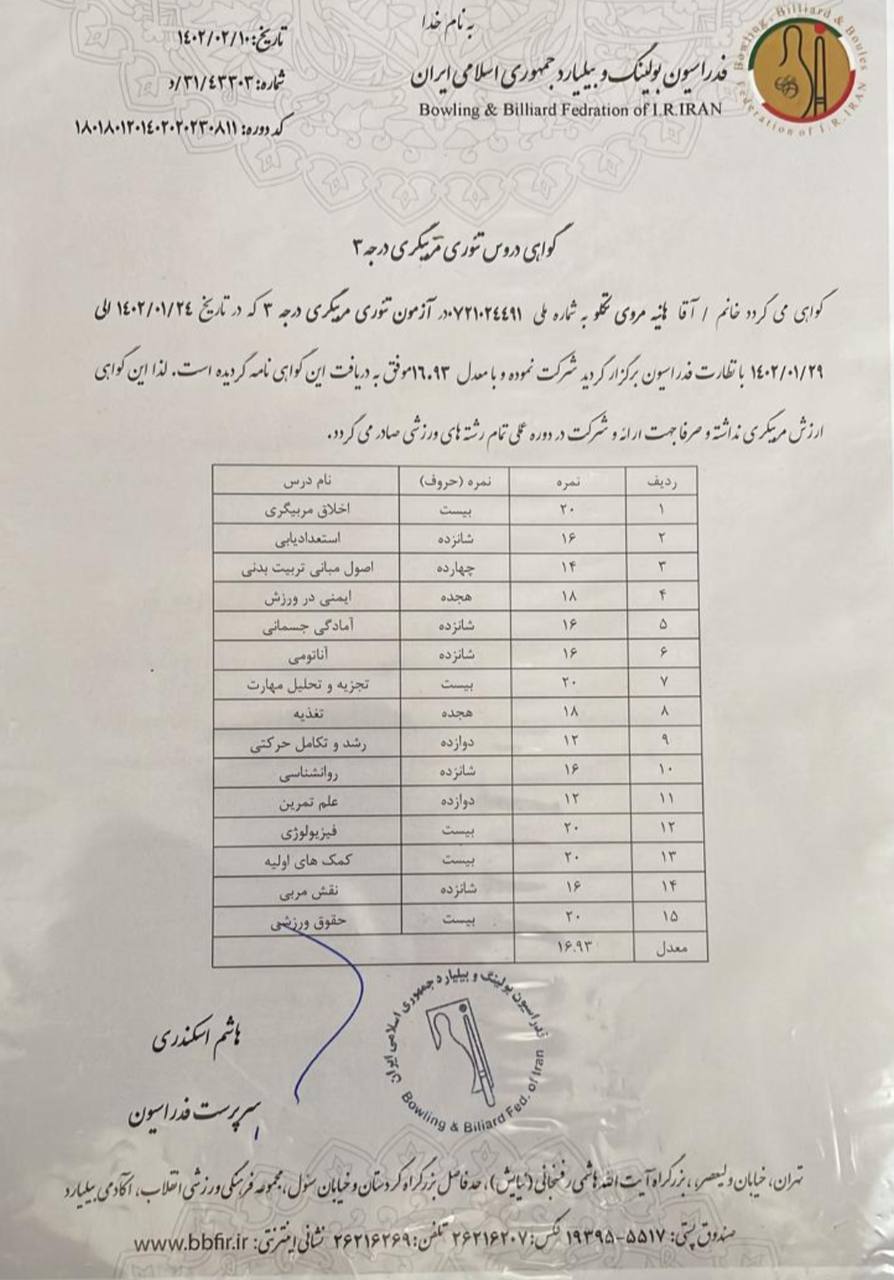 به نام خدا
فدراسیون بولینگ و بیلیارد جمهوری اسلامی ایران
Bowling & Billiard Fedration of I.R.IRAN
Bowling, Billiard & Boules Federation of I.R.IRAN
تاریخ: ۱۴۰۲/۰۲/۱۰
شماره: د/۳۱/۴۳۳۰۳
کد دوره: ۱۸۰۱۸۰۱۲۰۱۴۰۲۰۲۰۲۳۰۸۱۱
گواهی دروس تئوری مربیگری درجه ۳
گواهی می گردد خانم / آقا هانیه مروی تکلو به شماره ملی ۰۷۲۱۰۲۴۴۹۱در آزمون تئوری مربیگری درجه ۳ که در تاریخ ۱۴۰۲/۰۱/۲۴ الی
۱۴۰۲/۰۱/۲۹ با نظارت فدراسیون برگزار گردید شرکت نموده و با معدل ۱۶.۹۳موفق به دریافت این گواهی نامه گردیده است. لذا این گواهی
ارزش مربیگری نداشته و صرفا جهت ارائه و شرکت در دوره عملی تمام رشته های ورزشی صادر می گردد.
ردیف نمره نمره (حروف) نام درس
۱ ۲۰ بیست اخلاق مربیگری
۲ ۱۶ شانزده استعدادیابی
۳ ۱۴ چهارده اصول مبانی تربیت بدنی
۴ ۱۸ هجده ایمنی در ورزش
۵ ۱۶ شانزده آمادگی جسمانی
۶ ۱۶ شانزده آناتومی
۷ ۲۰ بیست تجزیه و تحلیل مهارت
۸ ۱۸ هجده تغذیه
۹ ۱۲ دوازده رشد و تکامل حرکتی
۱۰ ۱۶ شانزده روانشناسی
۱۱ ۱۲ دوازده علم تمرین
۱۲ ۲۰ بیست فیزیولوژی
۱۳ ۲۰ بیست کمک های اولیه
۱۴ ۱۶ شانزده نقش مربی
۱۵ ۲۰ بیست حقوق ورزشی
معدل ۱۶.۹۳
فدراسیون بولینگ و بیلیارد جمهوری اسلامی ایران
Bowling & Biliard Fed. of Iran
هاشم اسکندری
سرپرست فدراسیون
تهران، خیابان ولیعصر، بزرگراه آیت الله هاشمی رفسنجانی (نیایش)، حدفاصل بزرگراه کردستان و خیابان سئول، مجموعه فرهنگی ورزشی انقلاب، آکادمی بیلیارد
صندوق پستی: ۵۵۱۷-۱۹۳۹۵ فکس: ۲۶۲۱۶۲۰۷ تلفن: ۲۶۲۱۶۲۶۹ نشانی اینترنتی: www.bbfir.ir